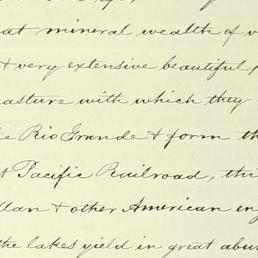 at mineral wealth of
& very extensive beautiful
asture with which they
e Rio Grande & form th
t Pacific Railroad, thi
llan & other American en
the lakes yield in great abu